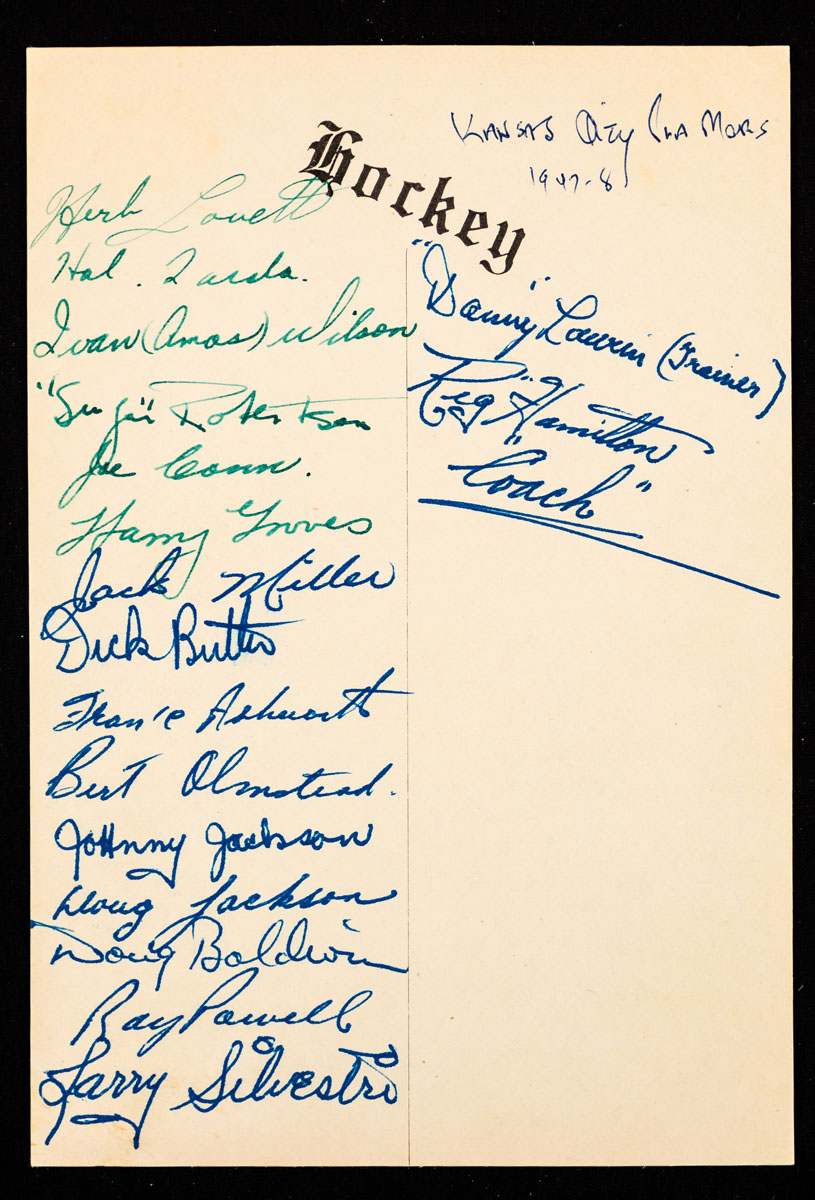 Kansas City Pla Mors
1947-8
Hockey
Herb Lovett
Hal.
Ivan (Amos) Wilson
Robertson
Joe Conn.
Harry Groves
Jack Miller
Dick Butler
Ashworth
Bert Olmstead.
Johnny Jackson
Doug Jackson
Doug Baldwin
Ray Powell
Larry Silvestri
"Danny" Laurin (Trainer)
Reg "Hamilton
"Coach"